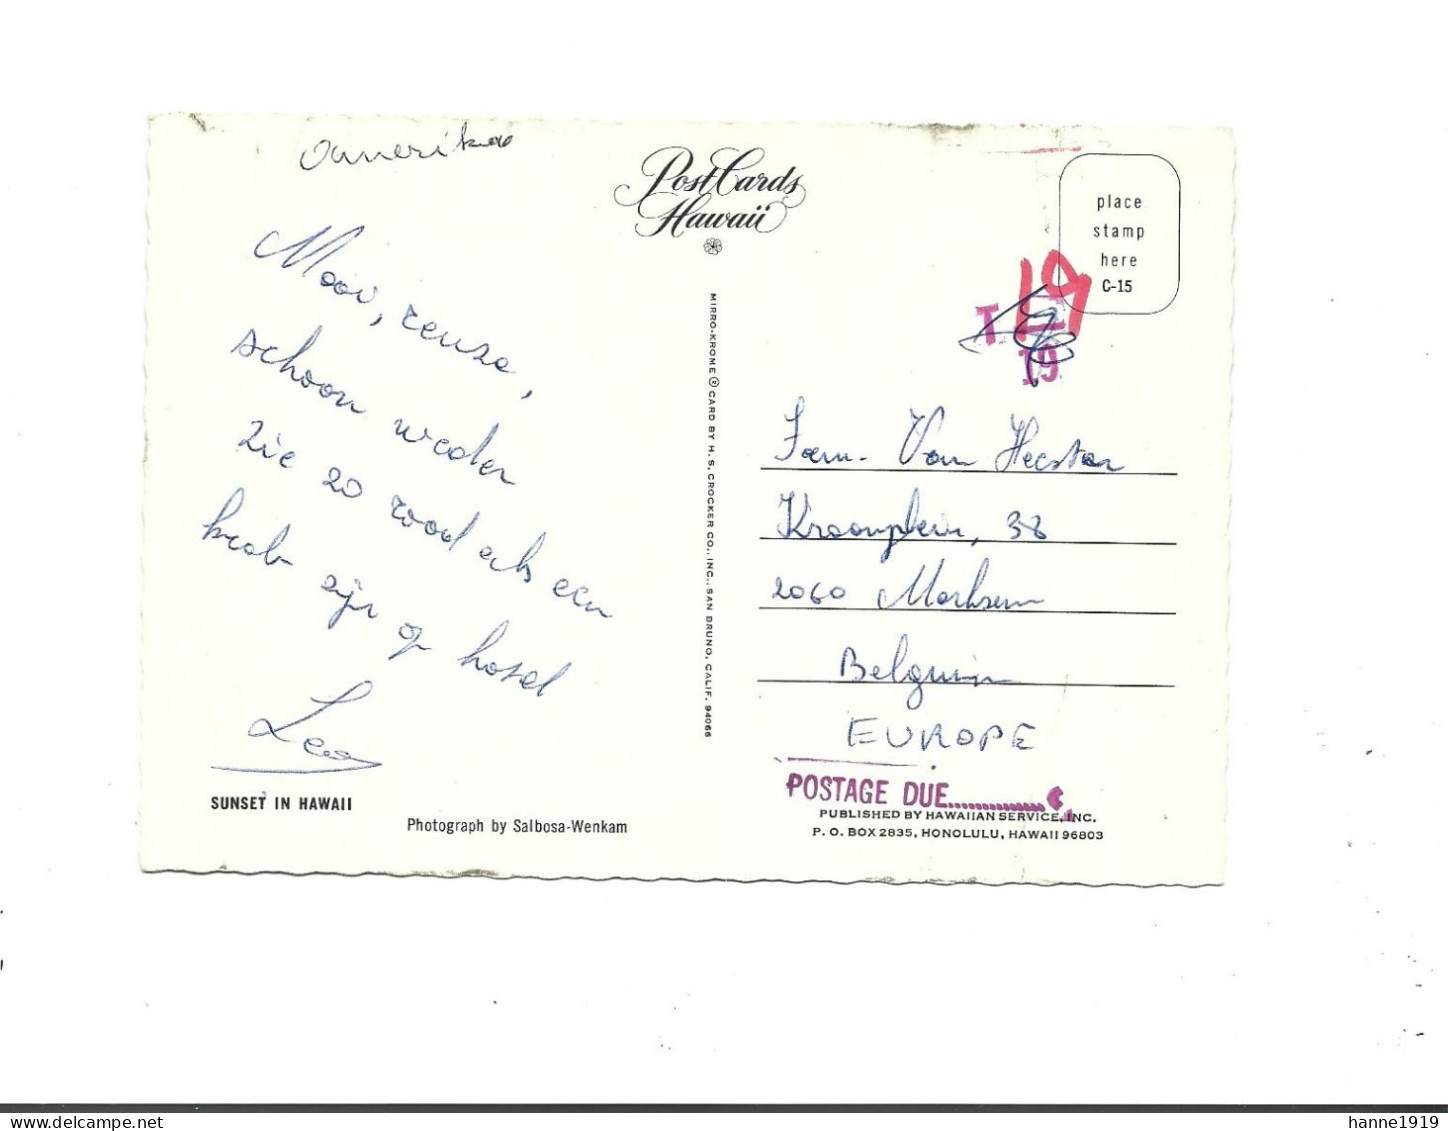 Amerika
Mooi, reuze,
schoon weder
Zie zo rood als een
krab zijn op hotel
Leo
SUNSET IN HAWAII
Photograph by Salbosa-Wenkam
PostCards
Hawaii
MIRRO-KROME ® CARD BY H. S. CROCKER CO., INC., SAN BRUNO, CALIF. 94066
place
stamp
here
C-15
19
T
19
Fam. Van Hecster
Kroonplein, 38
2060 Merksem
Belguim
EUROPE
POSTAGE DUE..............¢
PUBLISHED BY HAWAIIAN SERVICE, INC.
P. O. BOX 2835, HONOLULU, HAWAII 96803
hanne1919